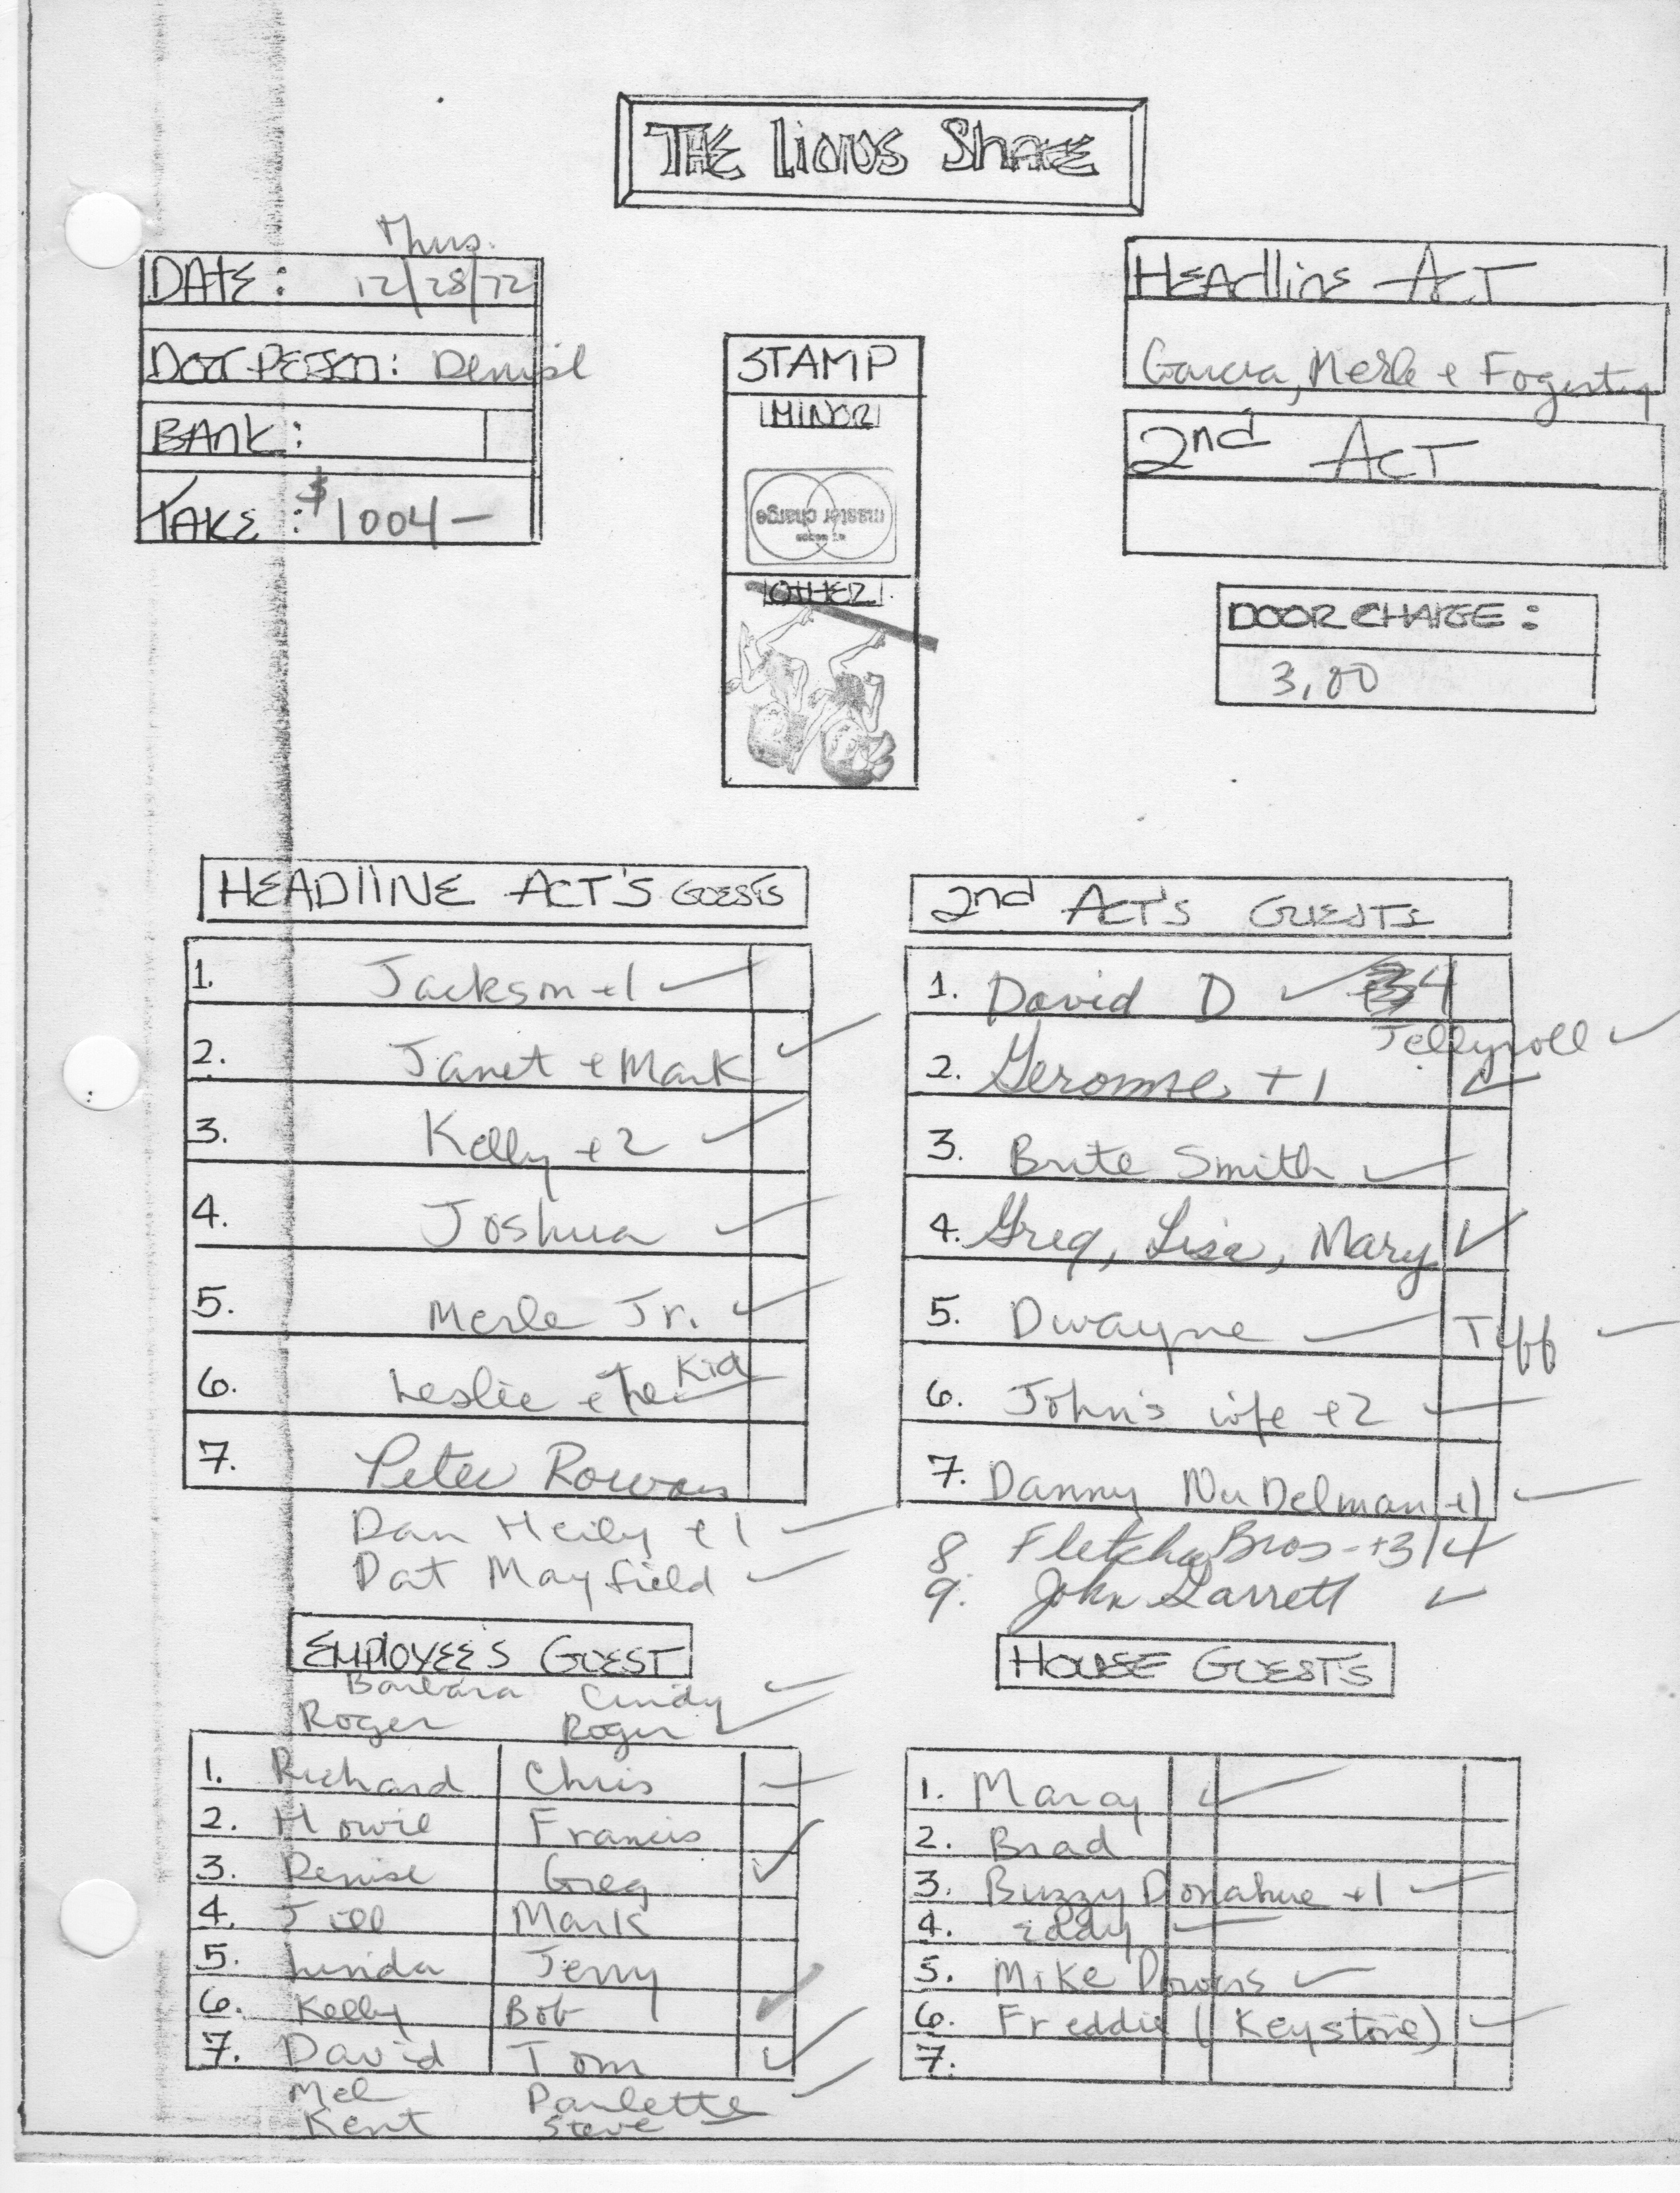 THE LIONS SHARE
Thurs.
DATE: 12/28/72
DOOR PERSON: Denise
BANK:
TAKE: $1004—
STAMP
MINOR
master charge
OTHER
HEADLINE ACT
Garcia, Merle + Fogerty
2nd ACT
DOOR CHARGE:
3,00
HEADLINE ACT'S GUESTS
1. Jackson +1 ✓
2. Janet + Mark ✓
3. Kelly +2 ✓
4. Joshua ✓
5. Merle Jr. ✓
6. Leslie + the Kid
7. Peter Rowan
Dan Heily +1 ✓
Dat Mayfield ✓
2nd ACT'S GUESTS
1. David D ✓ 4
Jellyroll ✓
2. Gerome +1 ✓
3. Brute Smith ✓
4. Greg, Lisa, Mary ✓
5. Dwayne ✓ Tiff ✓
6. John's wife +2 ✓
7. Danny NuDelman +1 ✓
8 Fletcher Bros - +3/4
9. John Garrett ✓
EMPLOYEE'S GUEST
Barbara Cindy ✓
Roger Roger ✓
1. Richard Chris ✓
2. Howie Francis ✓
3. Denise Greg ✓
4. Jill Mark
5. Linda Jerry
6. Kelly Bob ✓
7. David Tom ✓
Mel Paulette ✓
Kent Steve
HOUSE GUESTS
1. Marcy ✓
2. Brad
3. Buzzy Donahue +1 ✓
4. Eddy ✓
5. Mike Downs ✓
6. Freddie (Keystone) ✓
7.